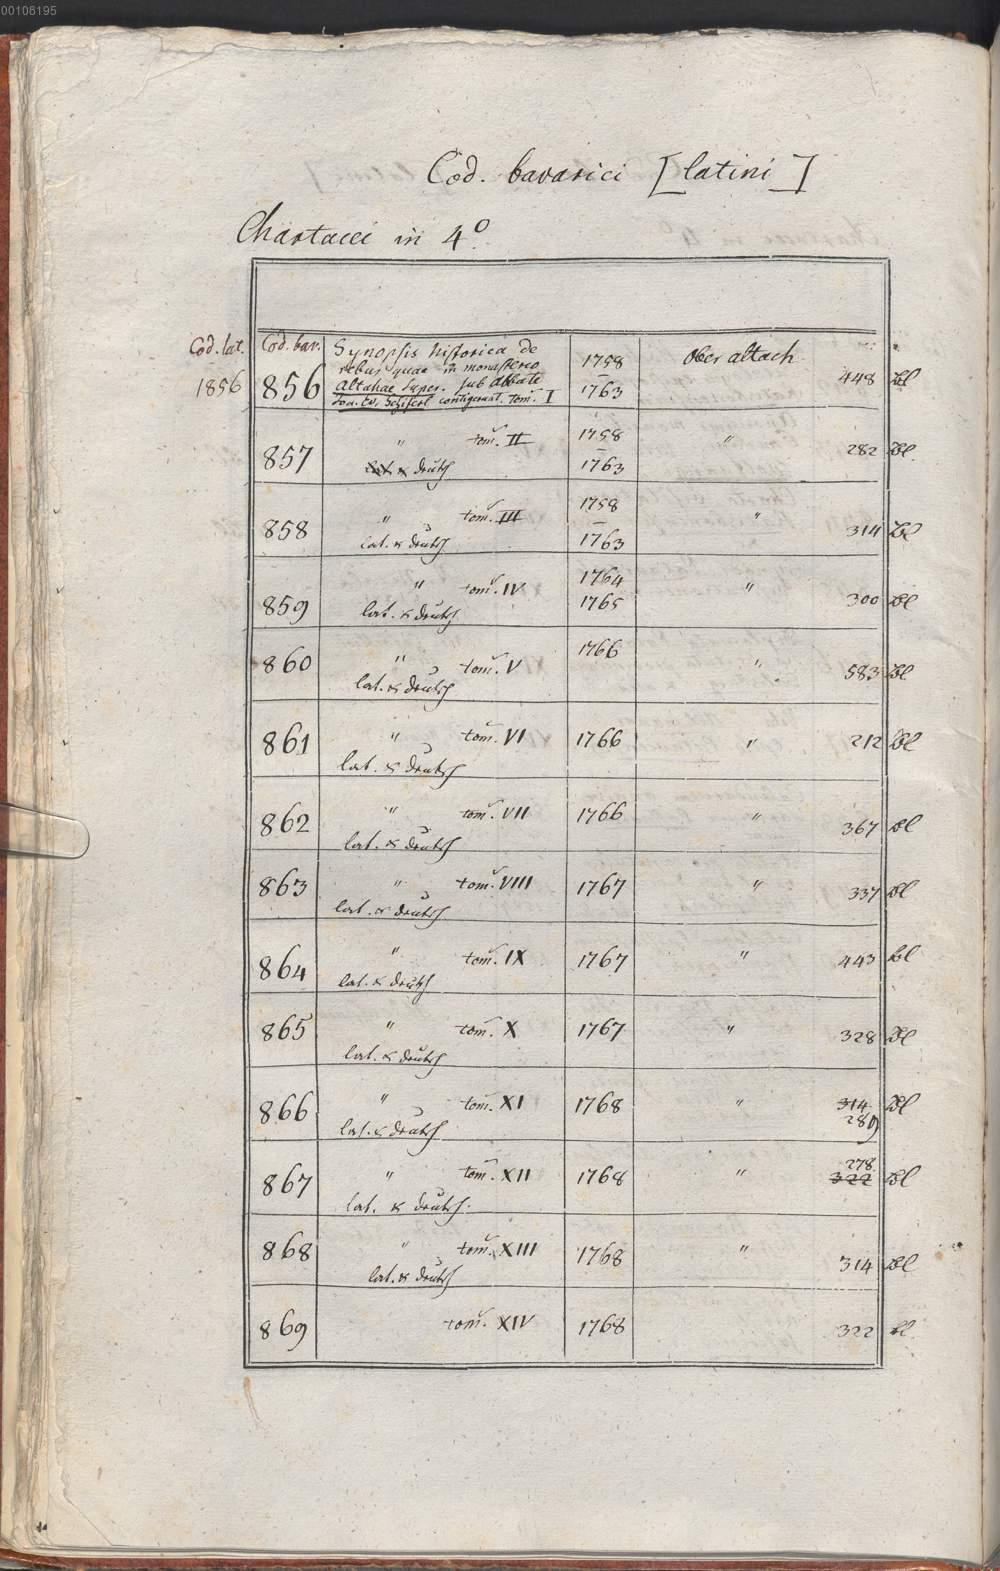 00108195
Cod. bavarici [latini]
Chartacei in 4º
Cod. lat. Cod. bav. Synopsis historica de
rebus quae in monasterio 1758 Ober altach
1856 856 Altahae super. sub Abbate 1763 448 Bl
Joa. Ev. Schifferl contigerunt. tom. I
857 " tom. II 1758 – 1763 " 282 Bl
lat. & deutsch
858 " tom. III 1758 – 1763 " 314 Bl
lat. & deutsch
859 " tom. IV 1764 1765 " 300 Bl
lat. & deutsch
860 " tom. V 1766 " 583 Bl
lat. & deutsch
861 " tom. VI 1766 " 212 Bl
lat. & deutsch
862 " tom. VII 1766 " 367 Bl
lat. & deutsch
863 " tom. VIII 1767 " 337 Bl
lat. & deutsch
864 " tom. IX 1767 " 443 Bl
lat. & deutsch
865 " tom. X 1767 " 328 Bl
lat. & deutsch
866 " tom. XI 1768 " 314 Bl
lat. & deutsch 289
278
867 " tom. XII 1768 " 322 Bl
lat. & deutsch.
868 " tom. XIII 1768 " 314 Bl
lat. & deutsch
869 tom. XIV 1768 322 Bl